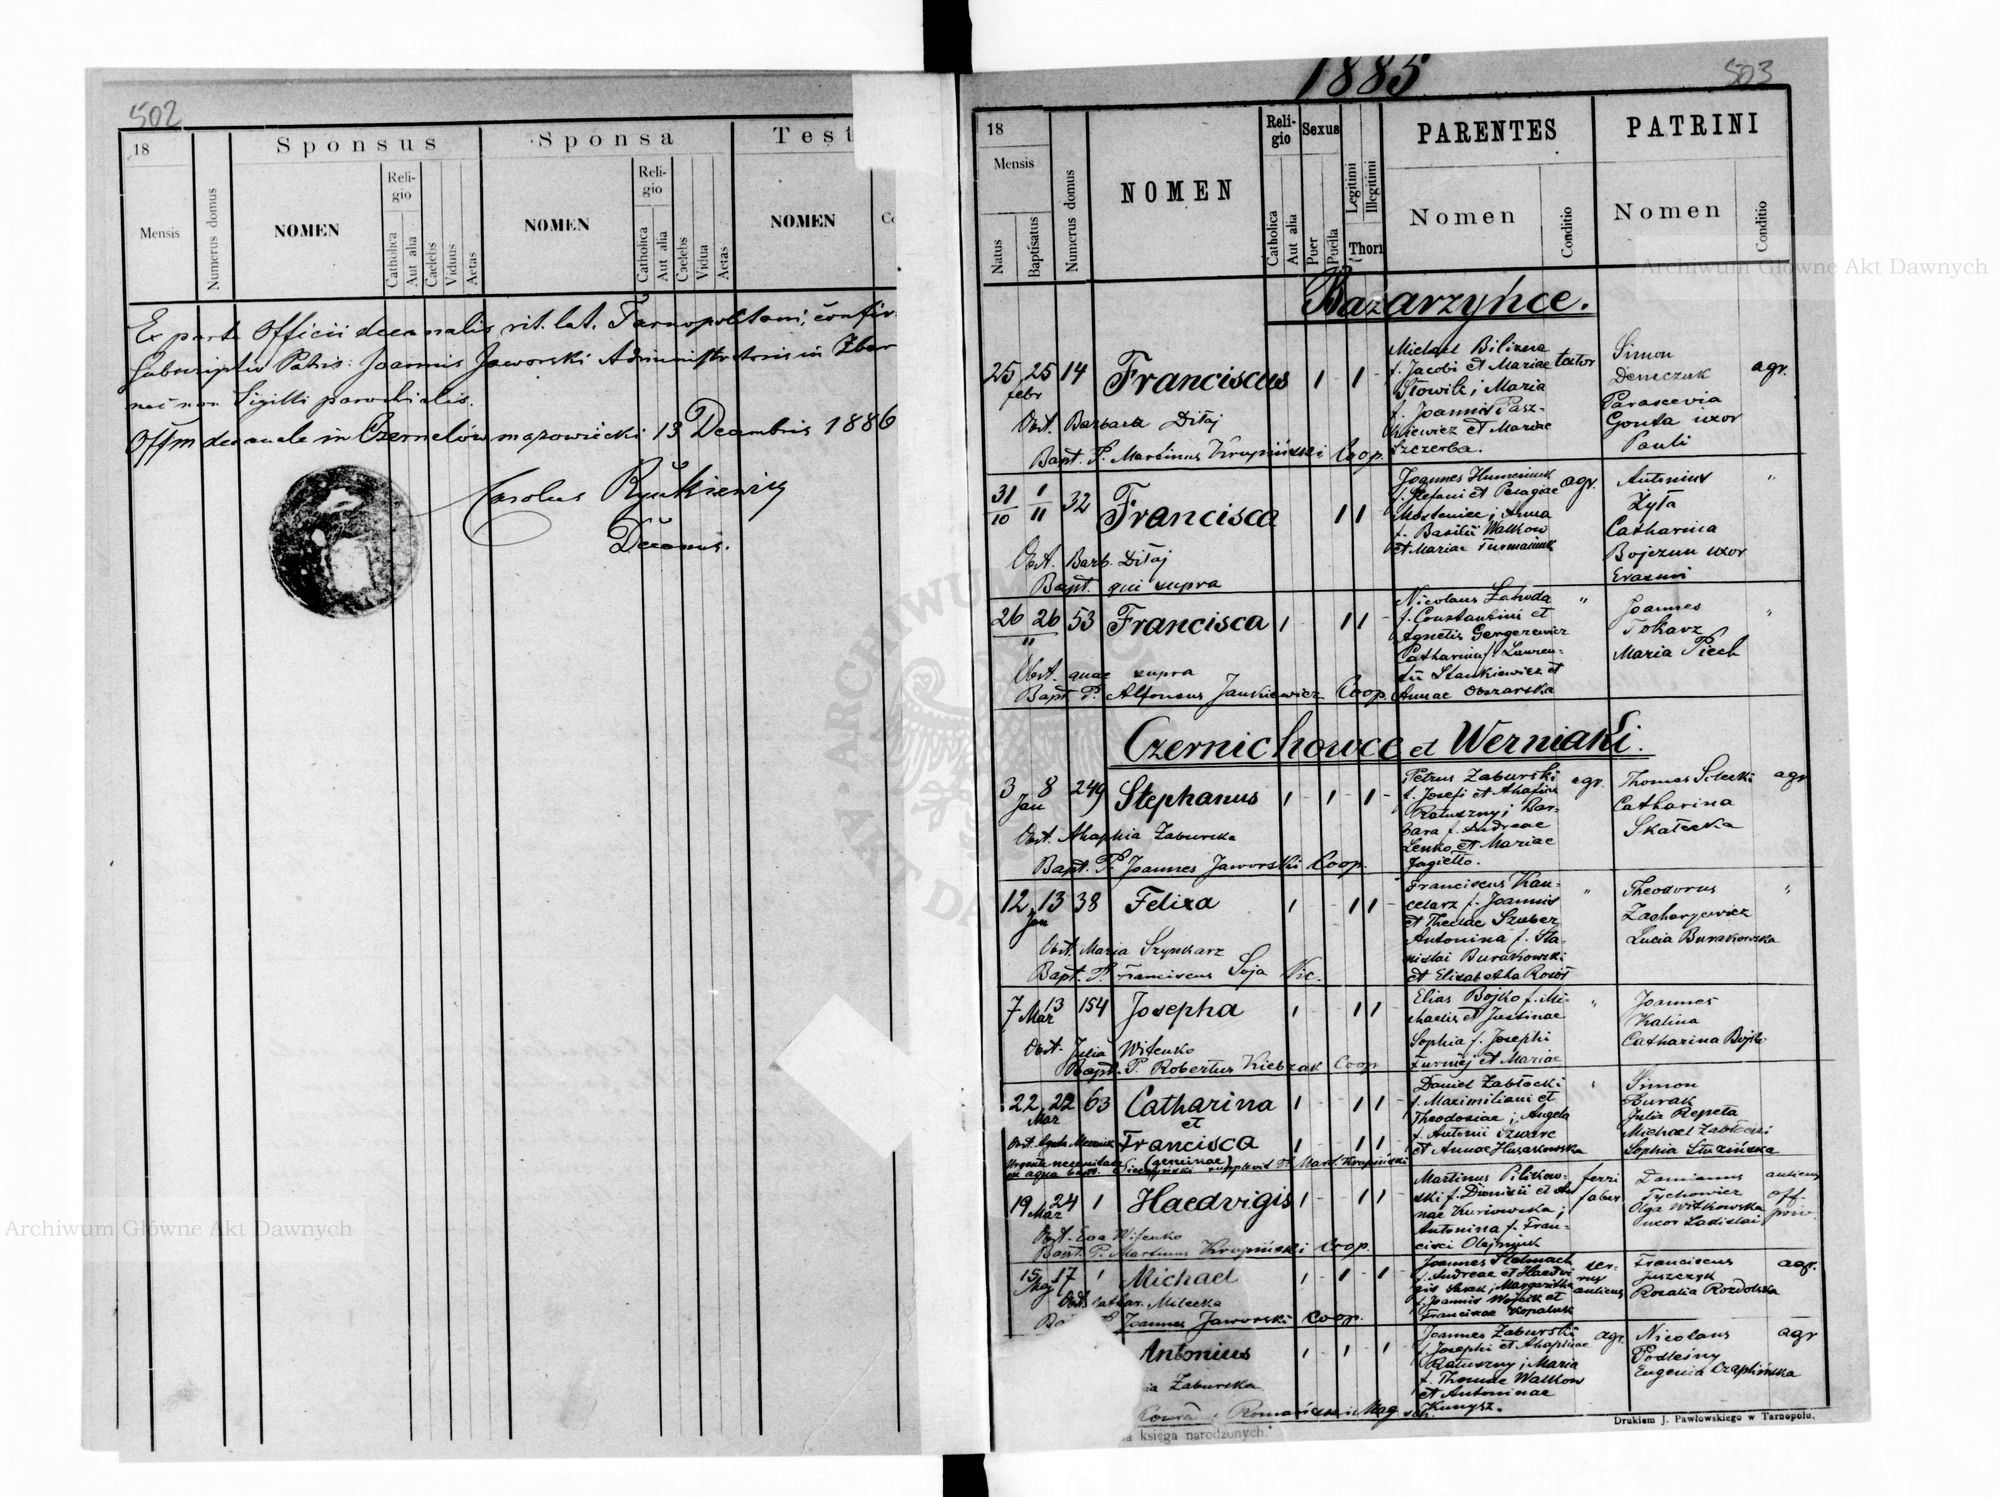 502
18
Sponsus
Sponsa
Test
Mensis
Numerus domus
NOMEN
Religio
Catholica
Aut alia
Caelebs
Viduus
Aetas
NOMEN
Religio
Catholica
Aut alia
Caelebs
Vidua
Aetas
NOMEN
Ex parte Officii decanalis rit. lat. Tarnopolitani, confir
Subscriptio Patris: Joannis Jaworski Administratoris in Zbar
nec non Sigilli parochialis.
Offm decanale in Czernelów mazowiecki 13 Decembris 1886
Carolus
Decanus.
1885
503
18
Mensis
Natus
Baptisatus
Numerus domus
NOMEN
Religio
Catholica
Aut alia
Sexus
Puer
Puella
Legitimi
Illegitimi
Thori
PARENTES
Nomen
Conditio
PATRINI
Nomen
Conditio
Bazarzyńce.
25 25 14 Franciscus 1 1
febr
Obst. Barbara Ditaj
Bapt. P. Martinus Krupiński Coop.
Michael Bilizna
f. Jacobi et Mariae
Słowik; Maria
f. Joannis Pasz-
kiewicz et Mariae
Szczerba.
Simon
Demczuk
Parascevia
Gonta uxor
Pauli
agr.
31 1 32 Francisca 1 1
10 11
Obst. Barb. Ditaj
Bapt. qui supra
Joannes Humeniuk
f. Stefani et Pelagiae
; Anna
f. Basilii Walkow
et Mariae Furmaniuk
agr.
Antonius
Zyła
Catharina
Bojczun uxor
Erasmi
"
26 26 53 Francisca 1 1 1
11
Obst. quae supra
Bapt. P. Alfonsus Jankiewicz Coop.
Nicolaus Zahoda
f. Constantini et
Agnetis Gergerewicz
Catharina f. Lauren-
tii Stankiewicz et
Annae Obszarska
"
Joannes
Tokarz
Maria Piech
"
Czernichowce et Werniaki.
3 8 249 Stephanus 1 1 1
Jan
Obst. Ahaphia Zaburska
Bapt. P. Joannes Jaworski Coop.
Petrus Zaburski
f. Josefi et Ahafiae
Ratuszny; Bar-
bara f. Andreae
Lenko et Mariae
Jagiełło.
agr.
Thomas
Catharina
Skałecka
agr
12 13 38 Felixa 1 1 1
Jan
Obst. Maria Szynkarz
Bapt. P. Franciscus Soja Vic.
Franciscus Kan-
celarz f. Joannis
et Theclae Szuber
Antonina f. Sta-
nislai Burakowski
et Elisabetha
"
Theodorus
Zacharyewicz
Lucia Burakowska
"
7 13 154 Josepha 1 1 1
Mar
Obst. Julia Witenko
Bapt. P. Robertus Kiebzak Coop
Elias Bojko f. Mi-
chaelis et Justinae
Sophia f. Josephi
Furniej et Mariae
"
Joannes
Kalina
Catharina Bojko
22 22 63 Catharina 1 1 1
Mar
et
Francisca 1 1 1
(geminae)
Obst. Agata
Urgente necessitate
ex aqua bapt. supplevit P. Mart. Krupiński
Daniel Zabłocki
f. Maximiliani et
Theodosiae; Angela
f. Antonii Szwarc
et Annae Husakowska
"
Simon
Burak
Julia Repeta
Michael Zabłocki
Sophia
19 24 1 Haedvigis 1 1 1
Mar
Obst. Eva Witenko
Bapt. P. Martinus Krupiński Coop.
Martinus Pilikow-
ski f. Dionisii et An
nae Kuriowska;
Antonina f. Fran-
cisci Olejnijuk
ferri
faber
Damianus
Tychowicz
Olga Witkowska
uxor Ladislai
aulicus
off.
priv.
15 17 1 Michael 1 1 1
Maj
Obst. Cathar. Milecka
Ba P. Joannes Jaworski Coop.
Joannes Stelmach
f. Andreae et Haedvi
gis; Margaritha
f. Joannis Wojcik et
Franciscae Kopaluk
ser-
vus
aulicus
Franciscus
Juszczyk
Rosalia Rozdolska
agr.
Antonius 1 1 1
ia Zaburska
Joannes Zaburski
f. Josephi et Ahaphiae
Ratuszny; Maria
f. Thomae Walkow
et Antoninae
Kunysz.
agr.
Nicolaus
Podleśny
Eugenia Czaplińska
agr
a księga narodzonych."
Drukiem J. Pawłowskiego w Tarnopolu.
Archiwum Główne Akt Dawnych
Archiwum Główne Akt Dawnych